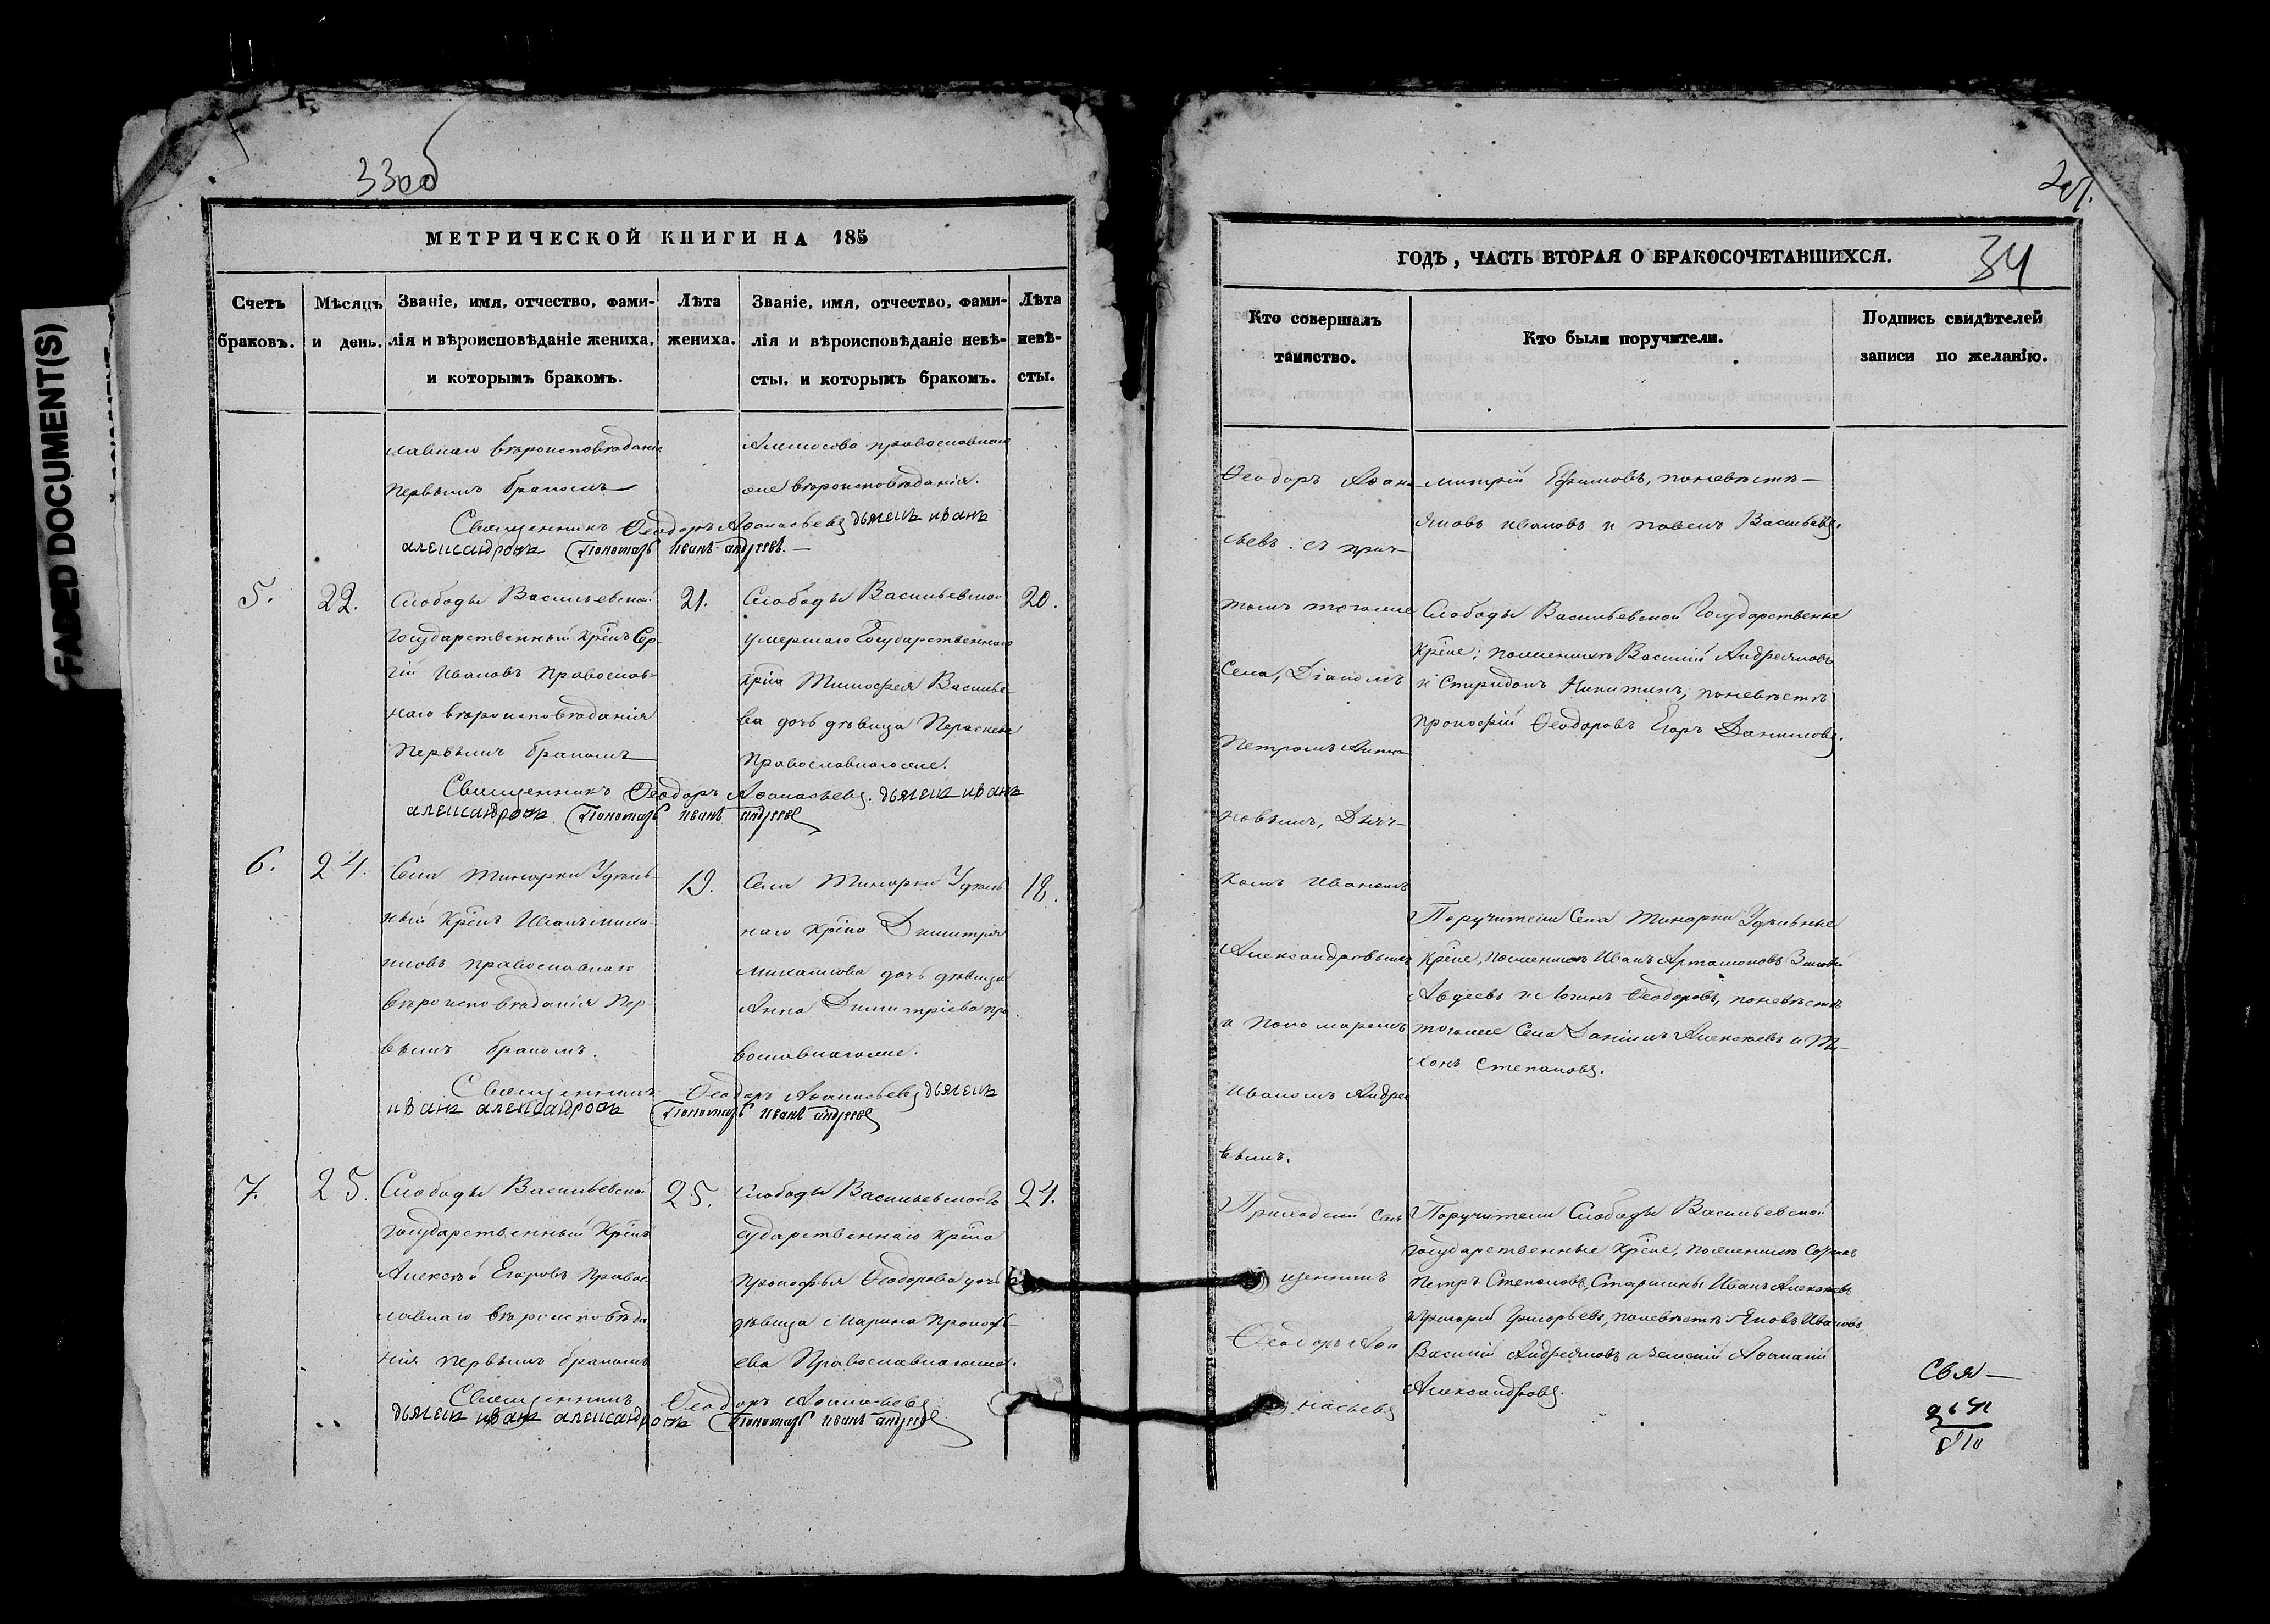 33об
МЕТРИЧЕСКОЙ КНИГИ НА 185
Счетъ браковъ.
Мѣсяцъ и день.
Званіе, имя, отчество, фами-
лія и вѣроисповѣданіе жениха,
и которымъ бракомъ.
Лѣта жениха.
Званіе, имя, отчество, фами-
лія и вѣроисповѣданіе невѣ-
сты, и которымъ бракомъ.
Лѣта невѣ-
сты.
славнаго вѣроисповѣданія
первымъ бракомъ
православнаго
же вѣроисповѣданія.
Священникъ Ѳеодоръ Аѳанасьевъ дьячекъ иванъ
александровъ Пономарь иванъ андреевъ.
5.
22.
Слободы Васильевской
Государственный Крѣнъ Сер-
гій Ивановъ Православ-
наго вѣроисповѣданія
Первымъ бракомъ
21.
Слободы Васильевской
умершаго Государственнаго
Крѣна Тимоѳея Василье-
ва дочь дѣвица Параскева
Православнаго же.
20.
Священникъ Ѳеодоръ Аѳанасьевъ. дьячекъ иванъ
александровъ. Пономарь иванъ андреевъ
6.
24.
Села Удѣль-
ный Крѣнъ Иванъ
православнаго
вѣроисповѣданія Пер-
вымъ бракомъ.
19.
Села Удѣль
наго Крѣна Димитрія
Михайлова дочь дѣвица
Анна Димитріева пра
вославнаго же.
18.
Священникъ Ѳеодоръ Аѳанасьевъ дьячекъ
иванъ александровъ Пономарь иванъ андреевъ
7.
25.
Слободы Васильевской
Государственный Крѣнъ
Алексѣй Егоровъ Правос
лавнаго вѣроисповѣда
нія первымъ бракомъ
25.
Слободы Васильевской Го
сударственнаго Крѣна
Прокофья Ѳеодорова дочь
дѣвица Марина Прокофь-
ева Православнаго же.
24.
Священникъ Ѳеодоръ Аѳанасьевъ
дьячекъ иванъ александровъ Пономарь иванъ андреевъ
ГОДЪ, ЧАСТЬ ВТОРАЯ О БРАКОСОЧЕТАВШИХСЯ.
34
Кто совершалъ
таинство.
Кто были поручители.
Подпись свидѣтелей
записи по желанію.
Ѳеодоръ Аѳана
сьевъ. съ прич-
томъ тогоже
Села, Діакомъ
Петромъ
новымъ, Дьяч-
комъ Иваномъ
Александровымъ
и пономаремъ
Иваномъ Андрее
вымъ.
митрій Ефимовъ, поневѣстѣ
Яковъ ивановъ и павелъ Васильевъ.
Слободы Васильевской Государственные
Крѣне; пожениху Василій Андреяновъ
и Спиридонъ Никитинъ; поневѣстѣ
Прокофій Ѳеодоровъ Егоръ Даниловъ.
Поручители Села Удѣльные
Крѣне, пожениху Иванъ Артамоновъ
Авдеевъ и Ѳеодоровъ, поневѣстѣ
тогоже Села Даніилъ Алексѣевъ и Ти-
хонъ Степановъ.
Приходскій Свя
щенникъ
Ѳеодоръ Аѳа
насьевъ
Поручители Слободы Васильевской
Государственные Крѣне, пожениху
Петръ Степановъ, Старшины Иванъ Алексѣевъ
и Григорій Григорьевъ, поневѣстѣ Яковъ Ивановъ,
Василій Андреяновъ и Аѳанасій
Александровъ.
Свя—